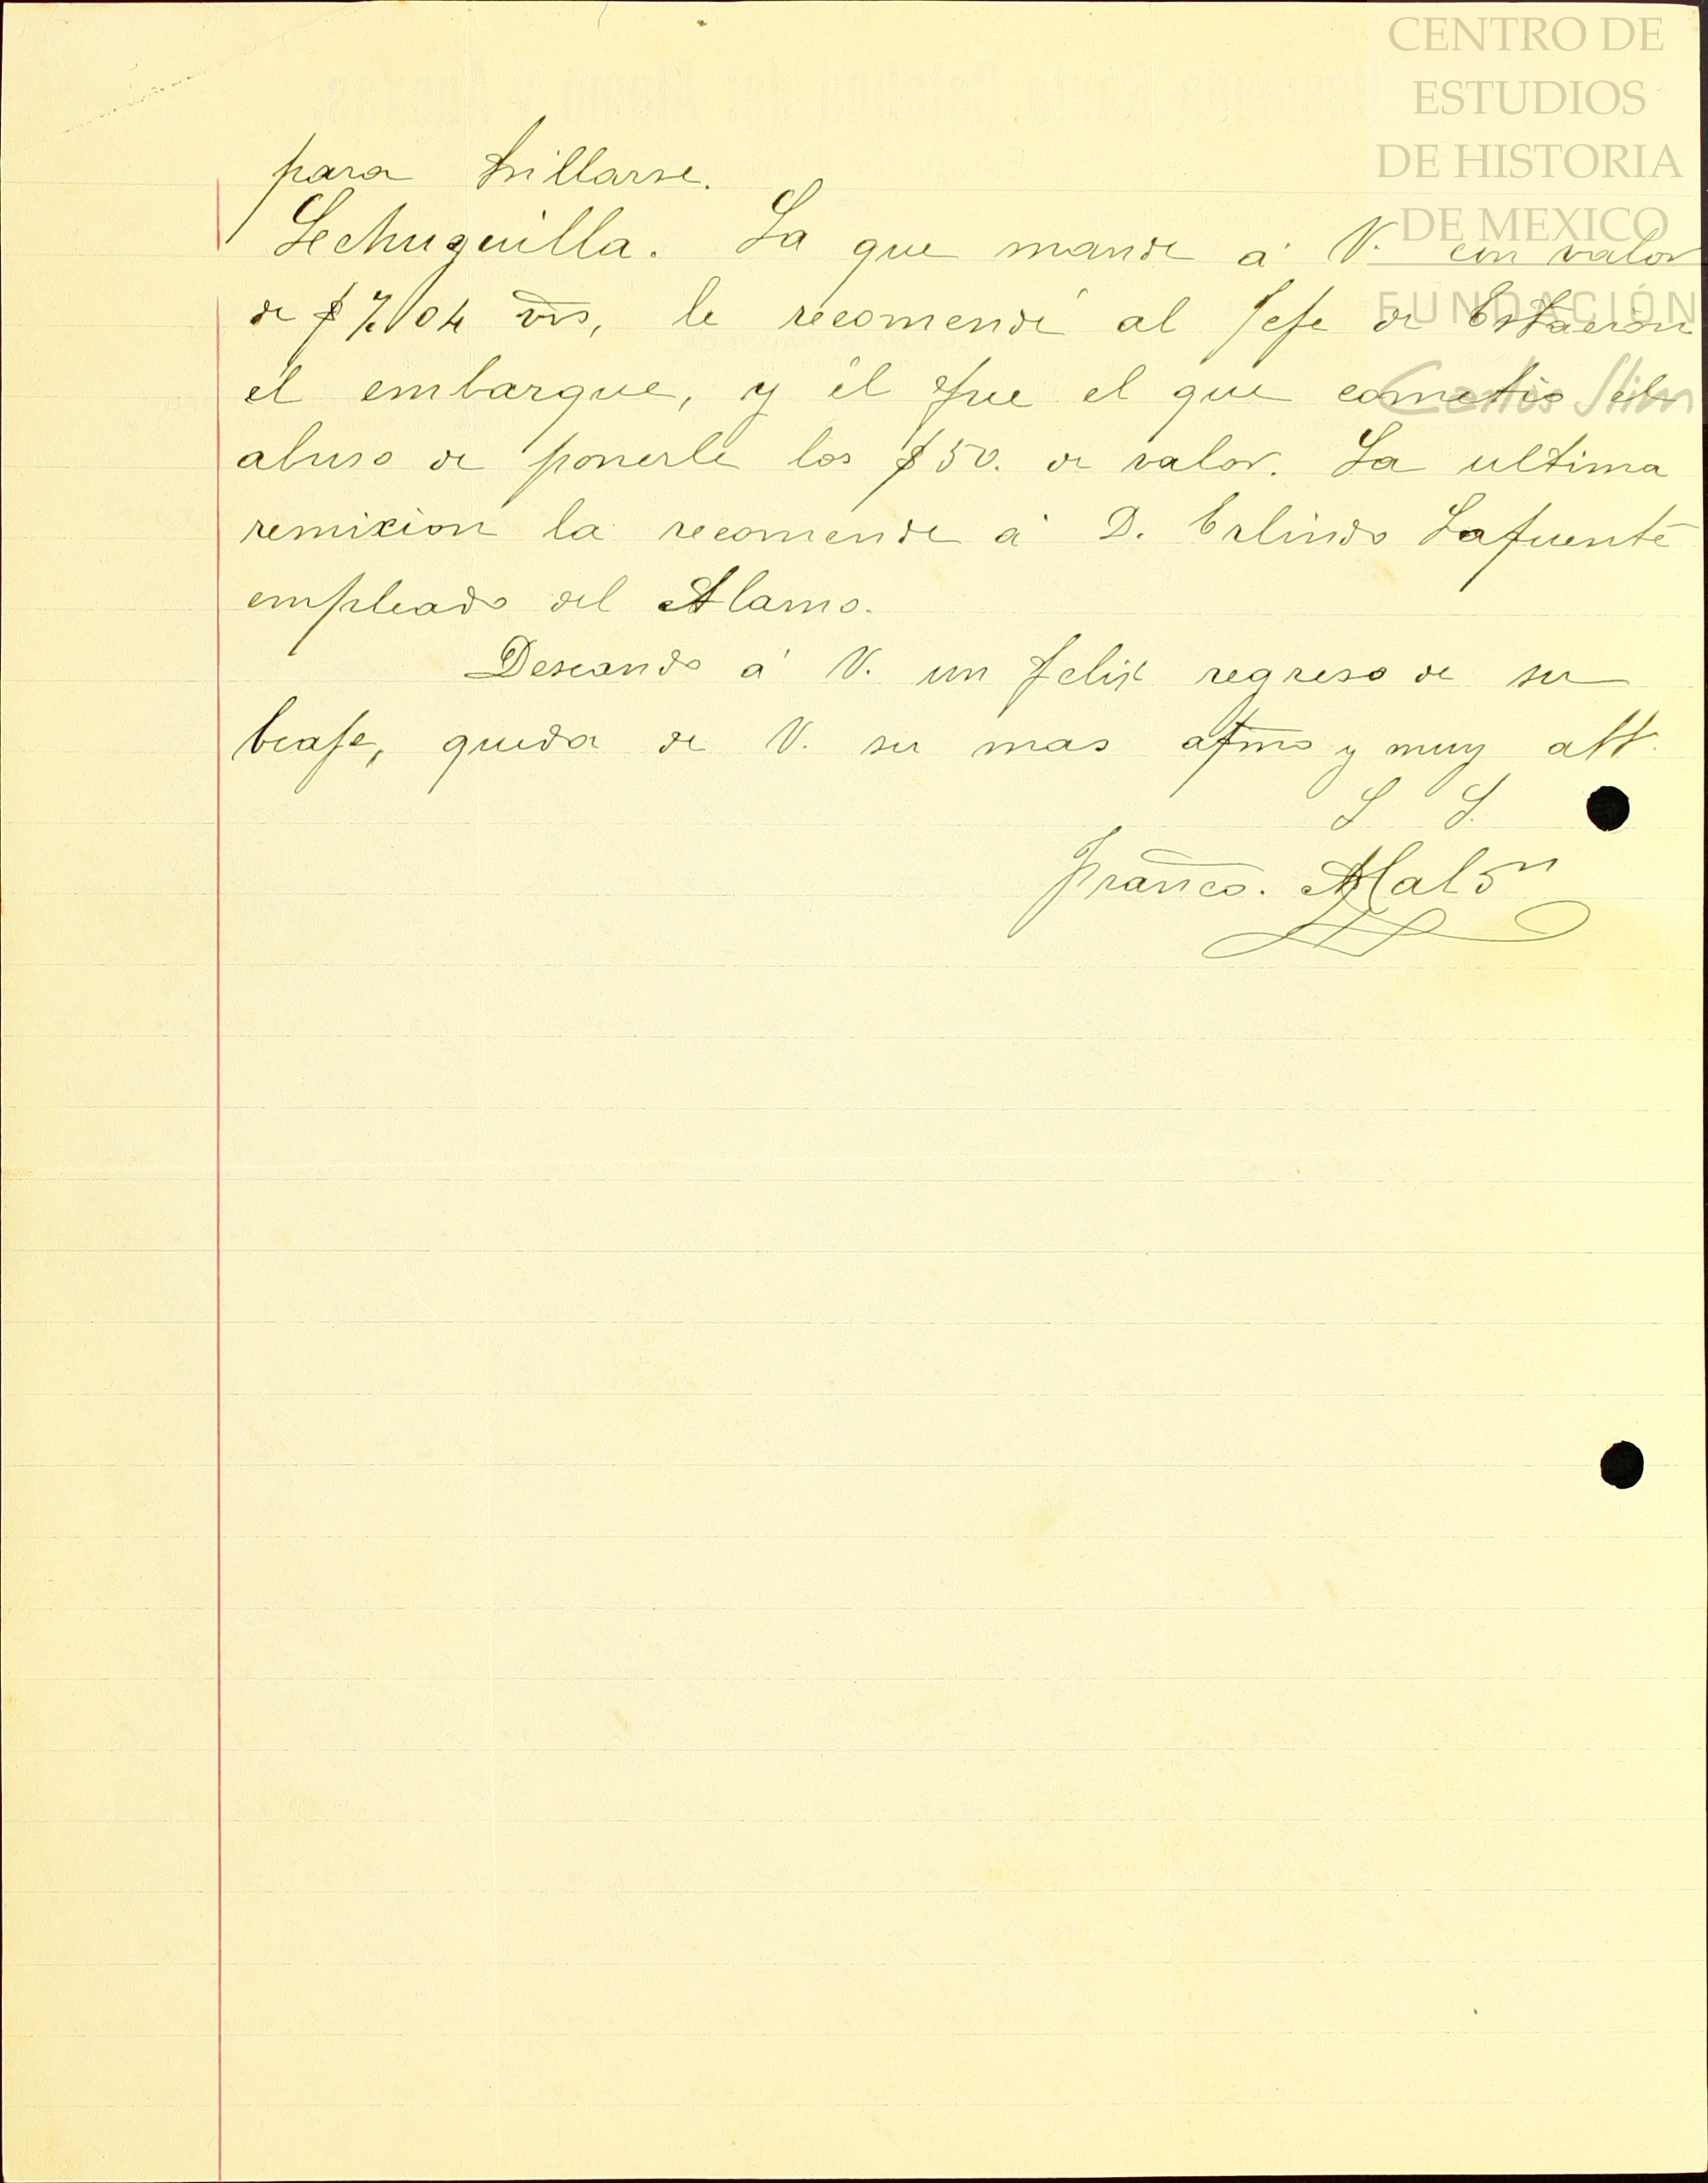 CENTRO DE
ESTUDIOS
DE HISTORIA
DE MEXICO
FUNDACIÓN
Carlos Slim
para trillarse.
Lechuguilla. La que mandé á V. con valor
de $7.04 vs, le recomendé al Jefe de Estacion
el embarque, y él fue el que cometio el
abuso de ponerle los $50. de valor. La ultima
remixion la recomende á D. Erlindo Lafuente
empleado del Alamo.
Deseando á V. un felix regreso de su
beaje, queda de V. su mas afmo y muy att.
S S.
Franco.